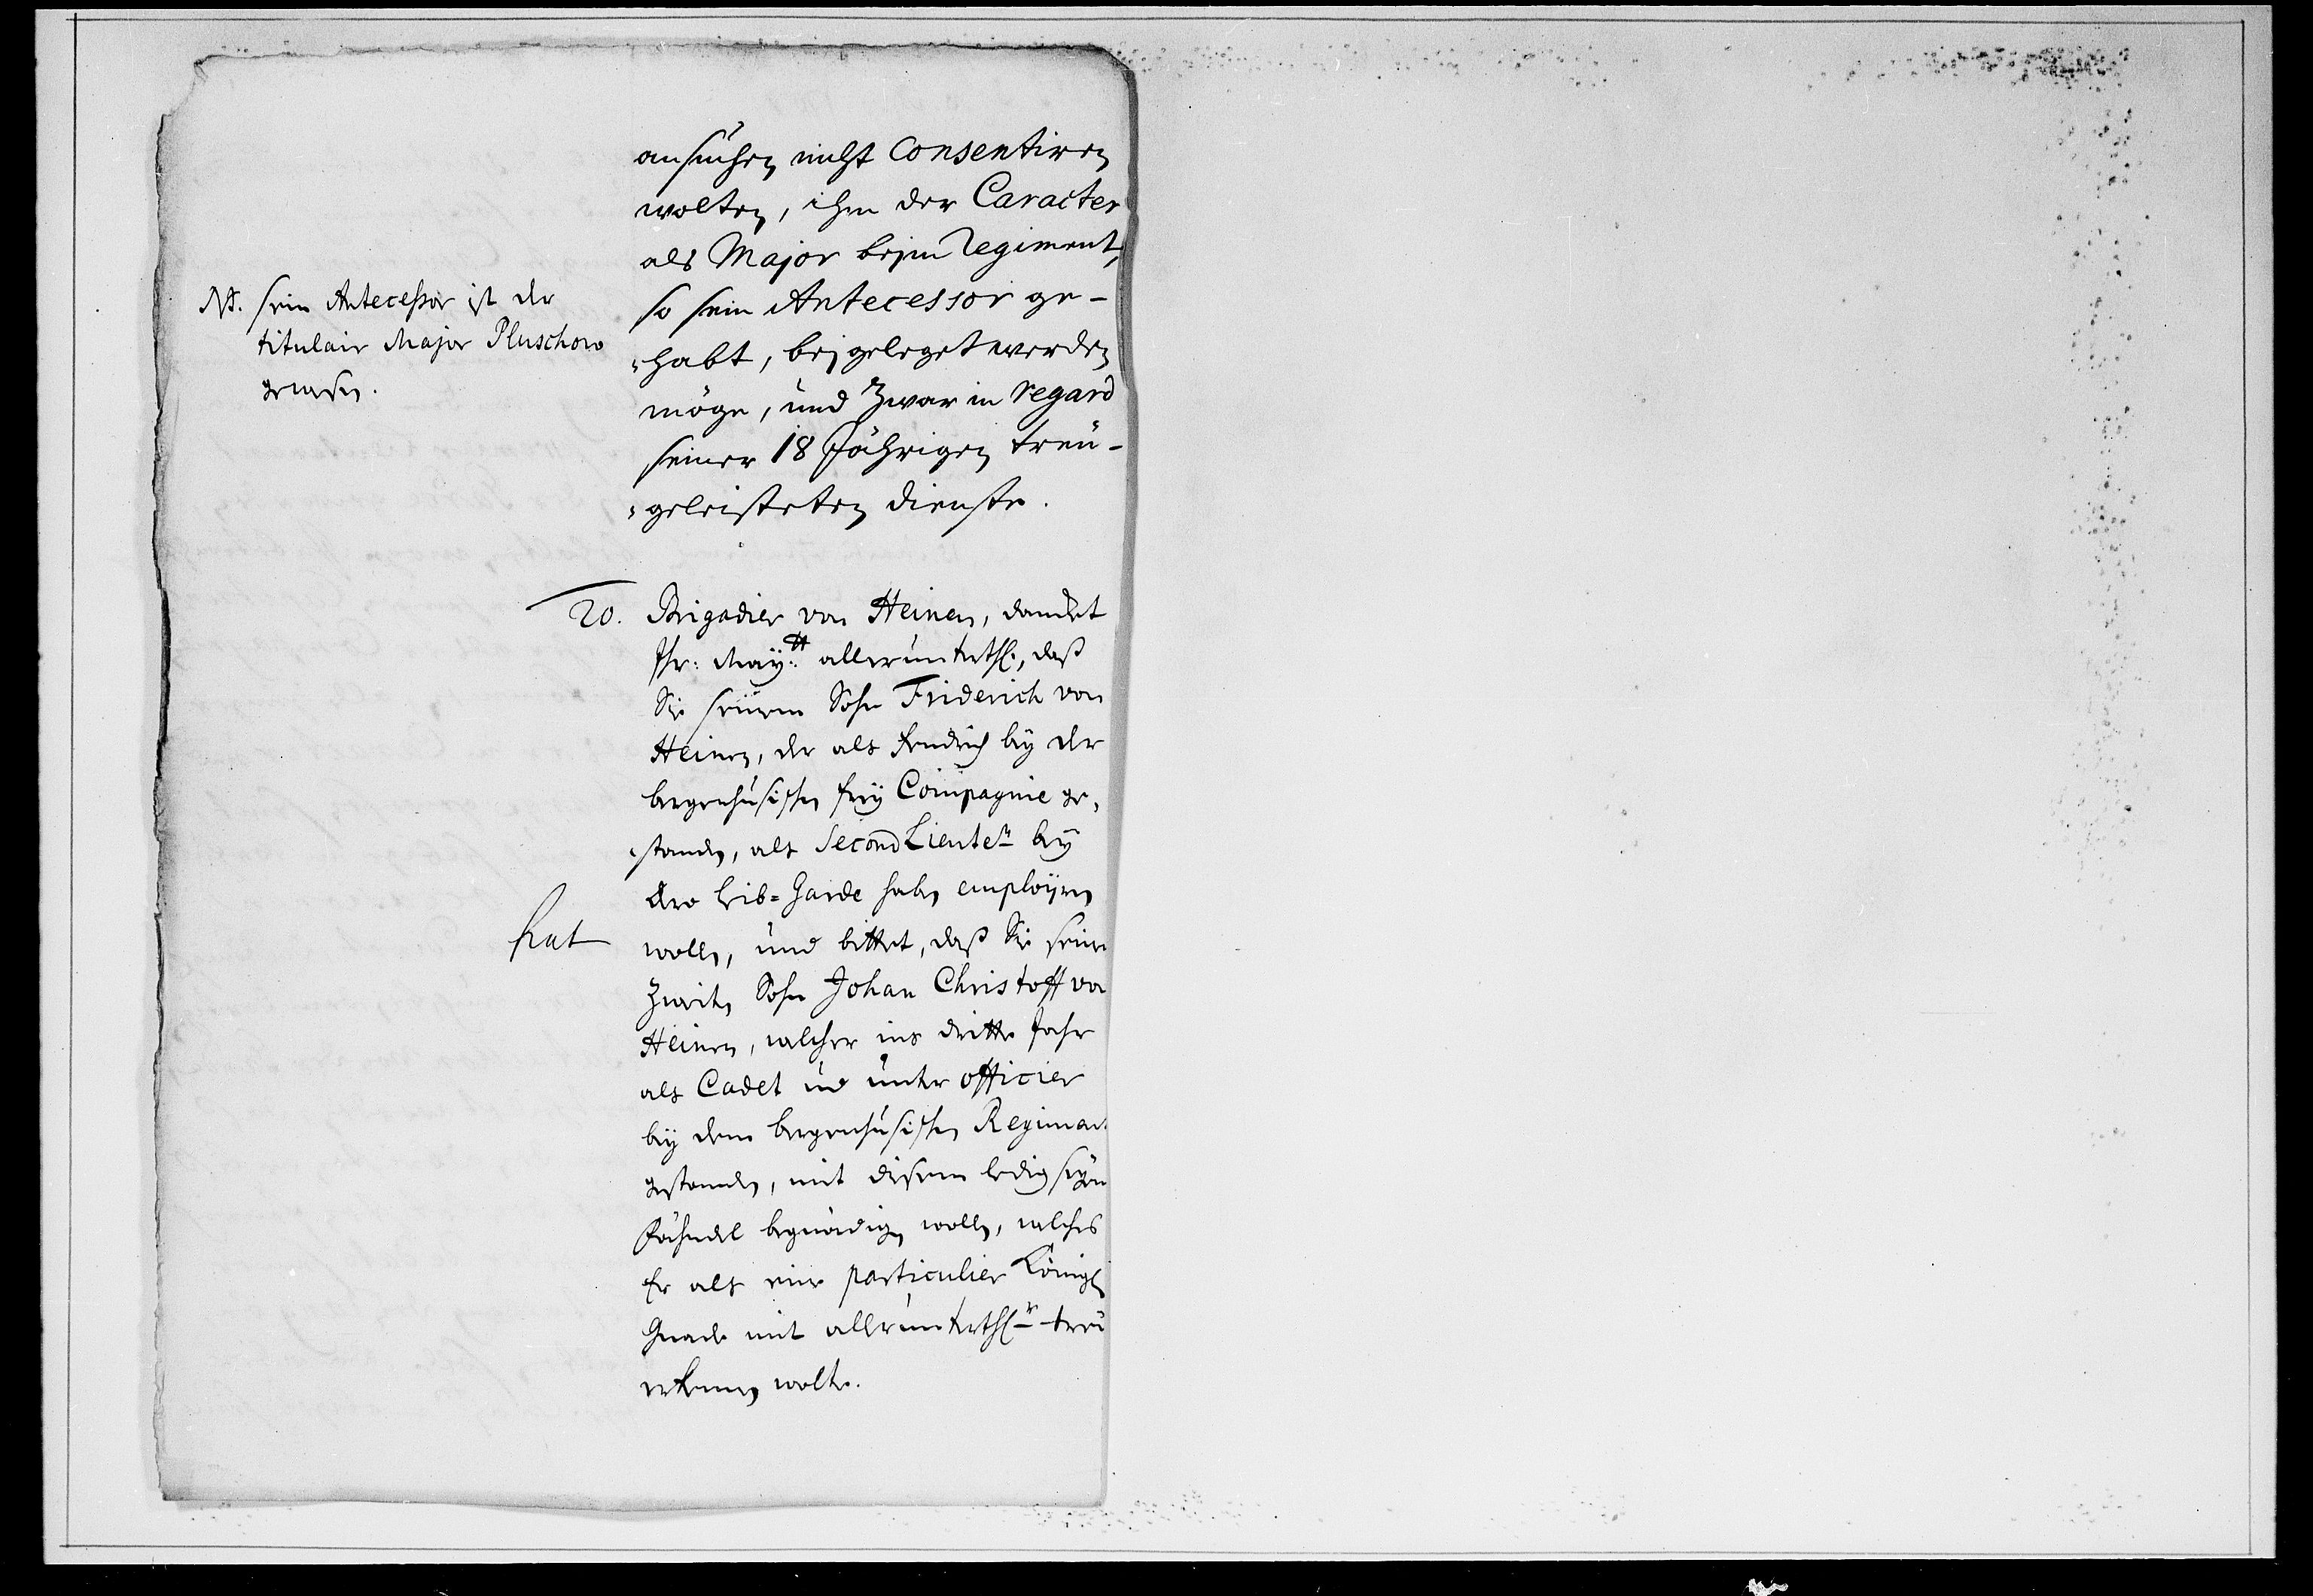 ansuchen nicht Consentiren
wolten, ihm der Caracter
als Major beym Regiment,
so sein Antecessor ge-
habt, beygeleget werden
möge, und zwar in regard
seiner 18 Jährigen treu-
geleisteten dienste.
NB. sein Antecessor ist der
titulair Major Pluschow
gewesen.
20. Brigadier von Heinen, dancket
Ihr: May:tt allerunterth:, daß
Sie seinem Sohn Friderich von
Heinen, der als Fendrich bey der
bergenhusischen frey Compagnie ge-
standen, als Second Lieutent bey
dero Leib-Garde haben employren
wollen, und bittet, daß Sie seinen
zweiten Sohn Johan Christoff von
Heinen, welcher ins dritte Jahr
als Cadet und unter officier
bey dem bergenhusischen Regiment
gestanden, mit disem ledig seyen
Fähndel begnädigen wollen, welches
Er als eine particulier Königl
Gnade mit allerunterthster treu
erkennen wolte.
hat